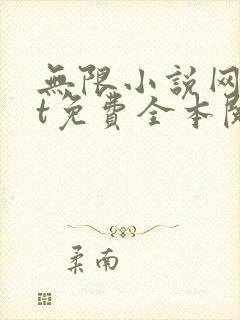 無限小説网
t免費全本閱
柔南